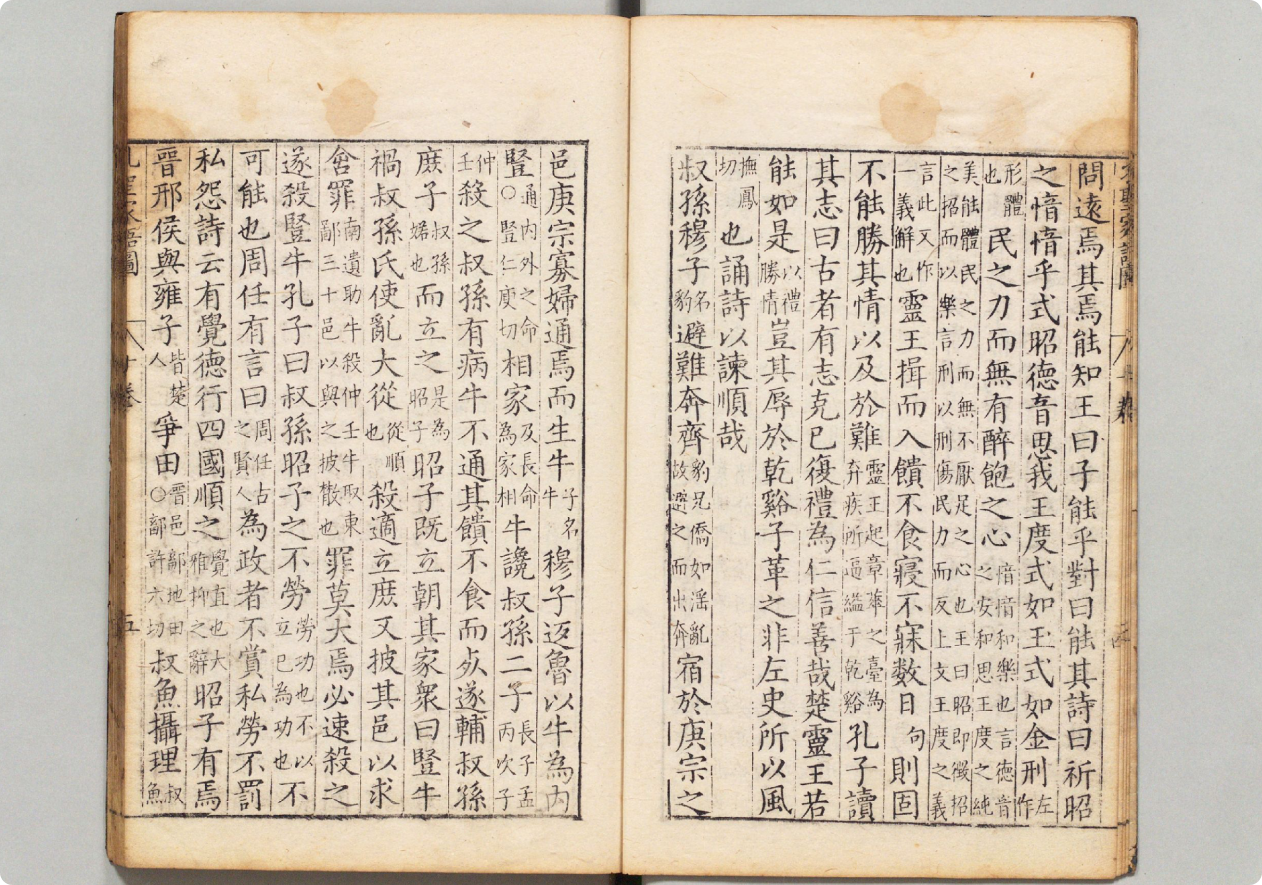 問遠焉其焉能知王曰子能乎對曰能其詩曰祈昭
之愔愔乎式昭德音思我王度式如王式如金刑左作
形體也民之力而無有醉飽之心愔愔和樂也言德音之安和思王度之純
美能體民之力而無不厭足之心也王曰昭即徵招之招而以樂言刑以刑傷民力而反上文王度之義
言此又作一義解也靈王揖而入饋不食寢不寐數日句則固
不能勝其情以及於難靈王起章華之臺為弃疾所逼縊于乾谿孔子讀
其志曰古者有志克已復禮為仁信善哉楚靈王若
能如是以禮勝情豈其辱於乾谿子革之非左史所以風
撫鳳切也誦詩以諫順哉
叔孫穆子名豹避難奔齊豹兄僑如淫亂故避之而出奔宿於庚宗之
邑庚宗寡婦通焉而生牛子名牛穆子返魯以牛為内
豎通内外之命○豎仁庾切相家及長命為家相牛讒叔孫二子長子孟丙次子
仲壬殺之叔孫有病牛不通其饋不食而死遂輔叔孫
庶子叔孫婼也而立之是為昭子昭子既立朝其家衆曰豎牛
禍叔孫氏使亂大從從順也殺適立庶又披其邑以求
舍罪南遺助牛殺仲壬牛取東鄙三十邑以與之披散也罪莫大焉必速殺之
遂殺豎牛孔子曰叔孫昭子之不勞勞功也不以立已為功也不
可能也周任有言曰周任古之賢人為政者不賞私勞不罰
私怨詩云有覺德行四國順之覺直也大雅抑之辭昭子有焉
晉邢侯與雍子皆楚人爭田晉邑鄐地田○鄐許六切叔魚攝理叔魚
家語圖 十卷 五